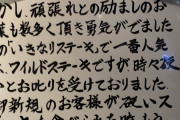 かし、頑張れとの励ましのお
葉も数多く頂き勇気がでまし
のいきなりステーキ」で一番人気
ス、ワイルドステーキですが時々硬
とお叱りを受けておりました
のお客様が硬いス